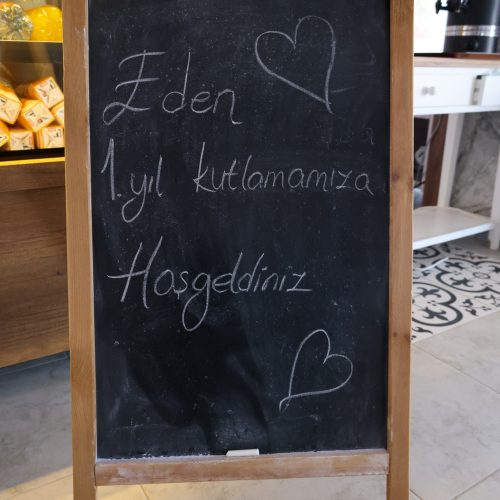 Eden
1. yıl kutlamamıza
Hoşgeldiniz